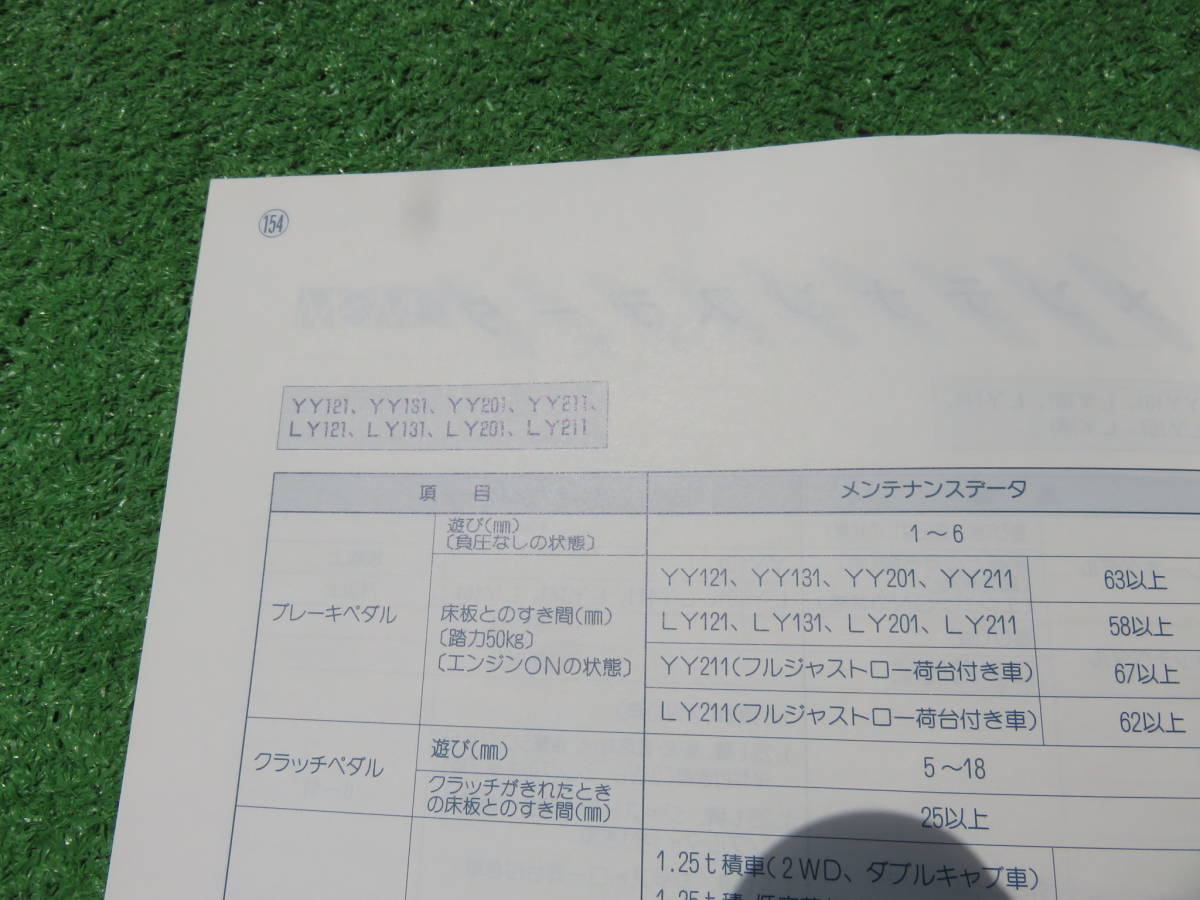 154
YY121、YY131、YY201、YY211、
LY121、LY131、LY201、LY211
項 目
メンテナンスデータ
ブレーキペダル
遊び(㎜)
〔負圧なしの状態〕
1～6
床板とのすき間(㎜)
〔踏力50㎏〕
〔エンジンONの状態〕
YY121、YY131、YY201、YY211
63以上
LY121、LY131、LY201、LY211
58以上
YY211(フルジャストロー荷台付き車)
67以上
LY211(フルジャストロー荷台付き車)
62以上
クラッチペダル
遊び(㎜)
5～18
クラッチがきれたとき
の床板とのすき間(㎜)
25以上
1.25t積車(2WD、ダブルキャブ車)
1.25t積